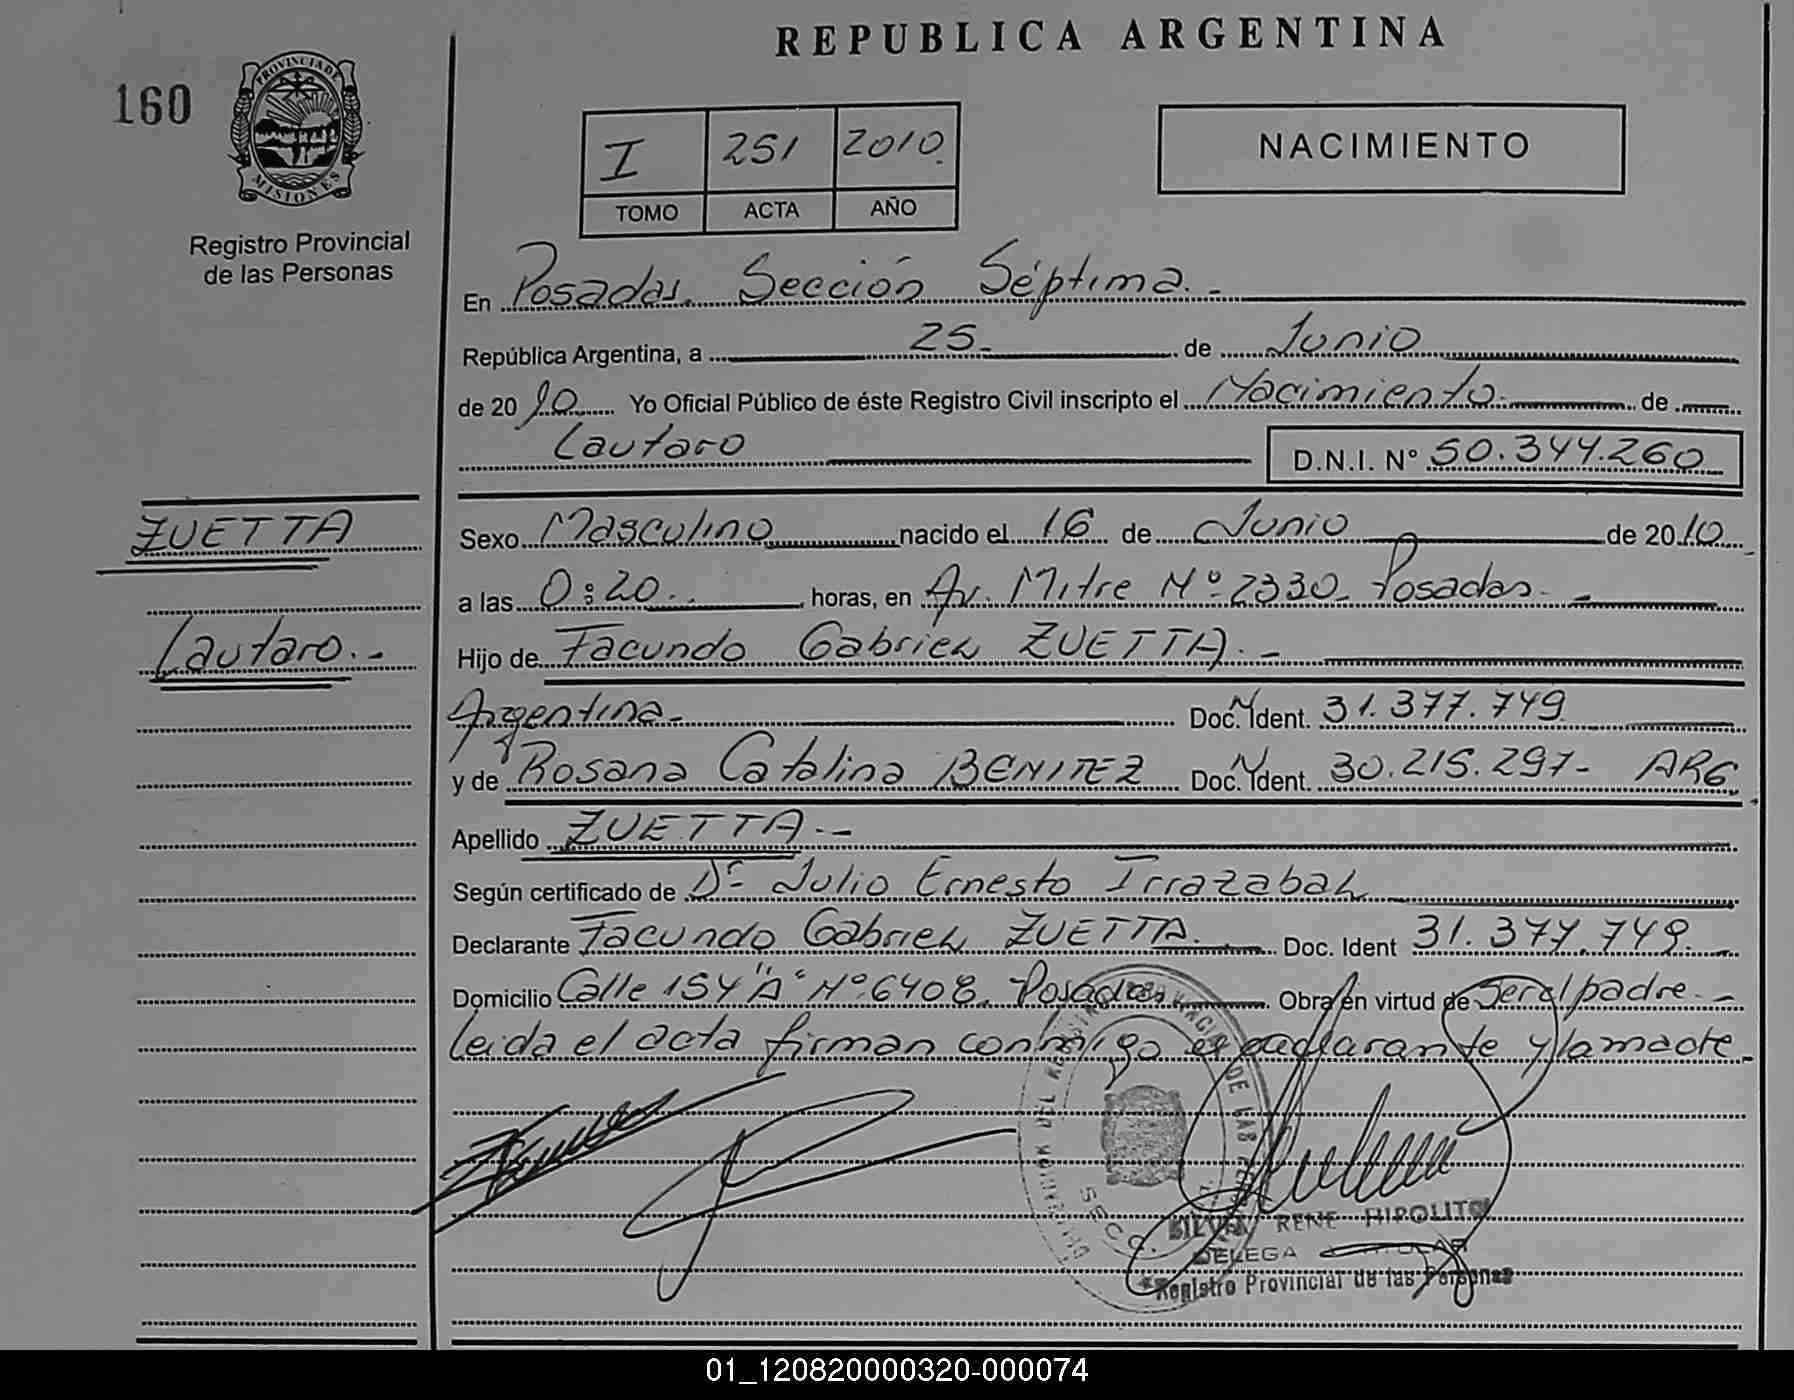 REPUBLICA ARGENTINA
160
PROVINCIA DE
MISIONES
Registro Provincial
de las Personas
I 251 2010
TOMO ACTA AÑO
NACIMIENTO
En Posadas. Sección Séptima. -
República Argentina, a 25 - de Junio
de 20 10 Yo Oficial Público de éste Registro Civil inscripto el Nacimiento - de
Lautaro
D.N.I. N° 50.344.260
ZUETTA
Lautaro. -
Sexo Masculino nacido el 16 de Junio de 20 10
a las 0:20.. horas, en Av. Mitre N°: 2330 - Posadas. -
Hijo de Facundo Gabriel ZUETTA. -
Argentina - Doc. N. Ident. 31.377.749
y de Rosana Catalina BENITEZ Doc. N. Ident. 30.215.297 - ARG.
Apellido ZUETTA. -
Según certificado de Dr. Julio Ernesto Irrazabal
Declarante Facundo Gabriel ZUETTA. Doc. Ident 31.377.749. -
Domicilio Calle 154 "A" N°: 6408. Posadas Obra en virtud de ser el padre. -
Leida el acta firman conmigo el declarante y la madre -
SILVA RENE HIPOLITO
DELEGA
Registro Provincial de las Personas
SECC.
01_120820000320-000074